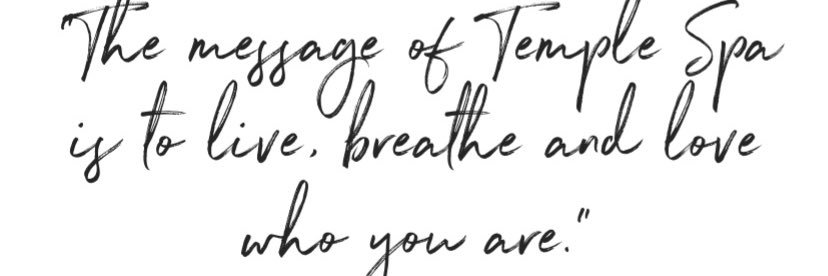 "The message of Temple Spa
is to live, breathe and love
who you are."